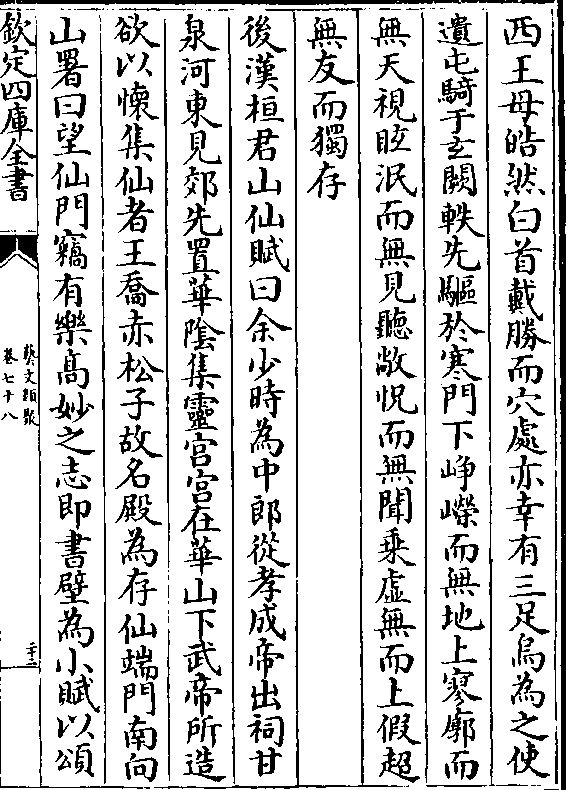 西王母皓然白首戴勝而穴處亦幸有三足烏為之使
遺屯騎于玄闕軼先驅於寒門下崢嶸而無地上寥廓而
無天視眩泯而無見聽敞怳而無聞乗虛無而上假超
無友而獨存
後漢桓君山仙賦曰余少時為中郎從孝成帝出祠甘
泉河東見郊先置華陰集靈宮宮在華山下武帝所造
欲以懷集仙者王喬赤松子故名殿為存仙端門南向
山署曰望仙門竊有樂髙妙之志即書壁為小賦以頌
欽定四庫全書
藝文類聚
卷七十八
二十二